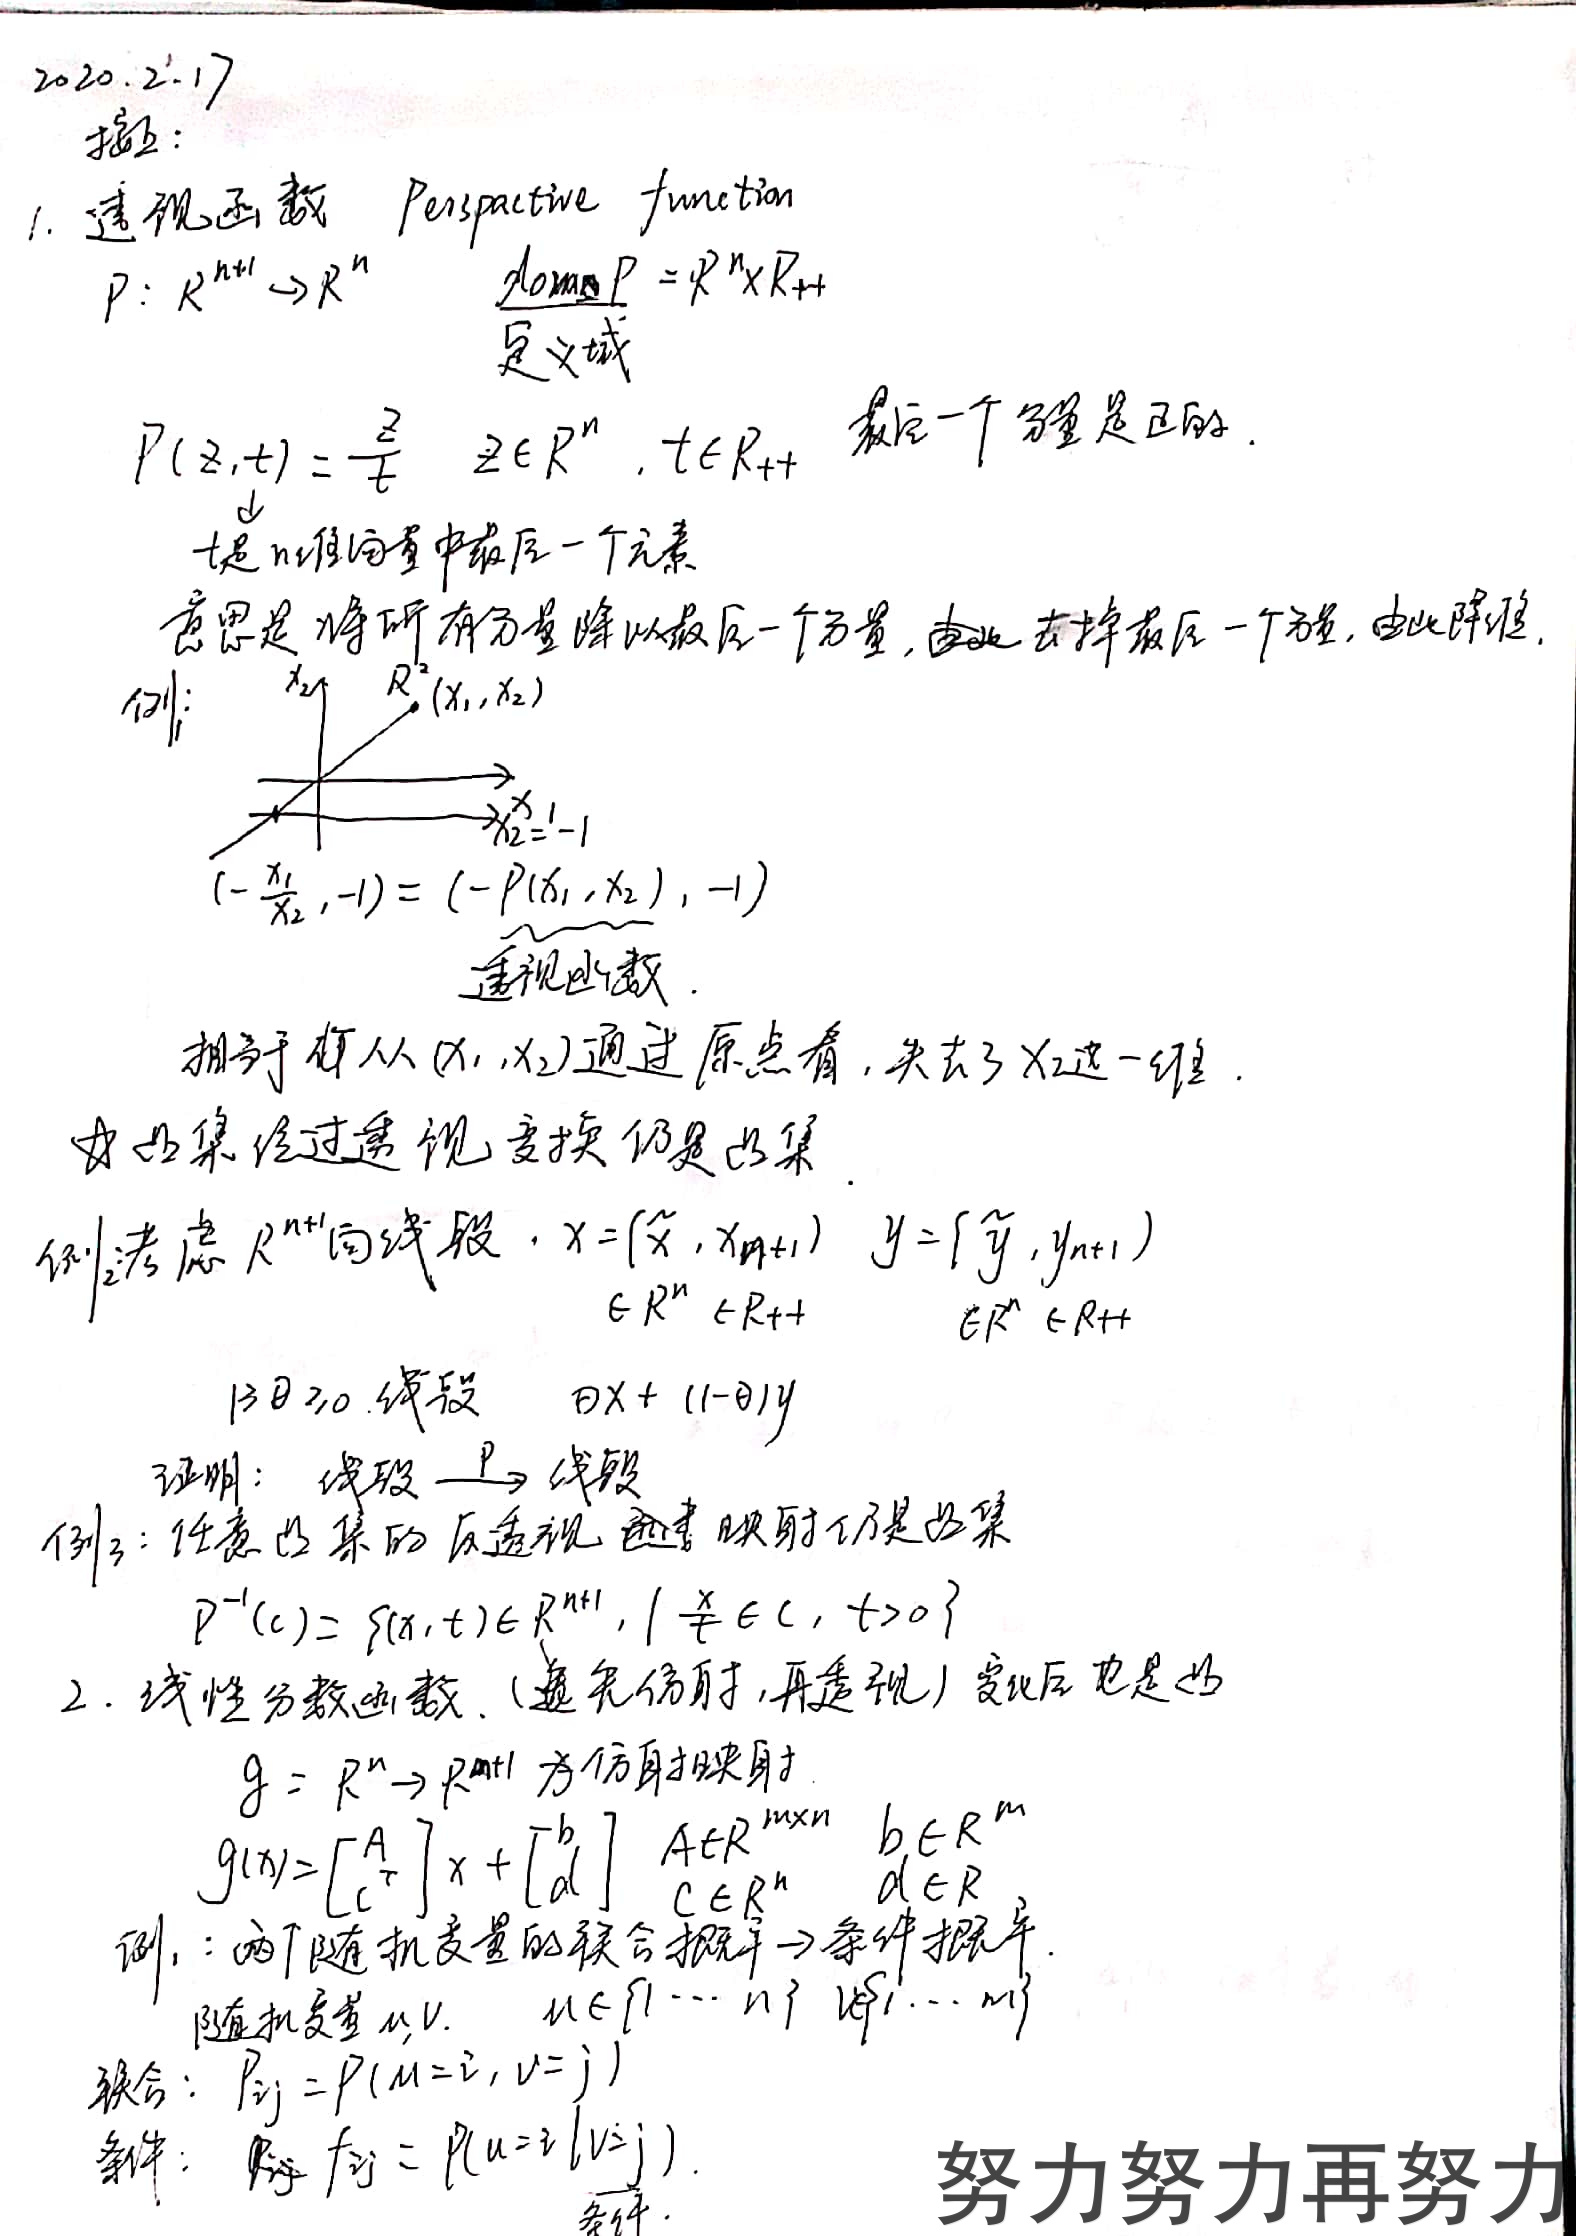 2020.2.17
接上:
1. 透视函数 Perspective function
P: R^{n+1} → R^n dom P = R^n × R_{++}
定义域
P(z,t) = z/t z∈R^n , t∈R_{++} 最后一个分量是正的.
↓
t是n维向量中最后一个元素
意思是将所有分量除以最后一个分量, 去掉最后一个分量, 由此降维.
例1: x_2 R^2 (x_1, x_2)
x_1
x_2=-1
(-x_1/x_2, -1) = (-P(x_1, x_2), -1)
透视函数.
相当于 从(x_1,x_2)通过原点看, 失去了x_2这一维.
☆凸集经过透视变换仍是凸集.
例2:考虑R^{n+1}内线段, x=(x̃, x_{n+1}) y=(ỹ, y_{n+1})
∈R^n ∈R_{++} ∈R^n ∈R_{++}
1≥θ≥0 线段 θx + (1-θ)y
证明: 线段 →^P 线段
例3: 任意凸集的反透视 映射仍是凸集
P^{-1}(c) = {(x,t)∈R^{n+1}, | x/t ∈ C, t>0}
2. 线性分数函数. (先仿射,再透视) 变化后也是凸
g = R^n → R^{m+1} 为仿射映射.
g(x) = [A c^T] x + [b d] A∈R^{m×n} b∈R^m
C∈R^n d∈R
例1: 两个随机变量的联合概率→条件概率.
随机变量 u,v. u∈{1 ··· n} v∈{1 ... m}
联合: P_{ij} = P(u=i, v=j)
条件: f_{ij} = P(u=i | v=j).
条件.
努力努力再努力